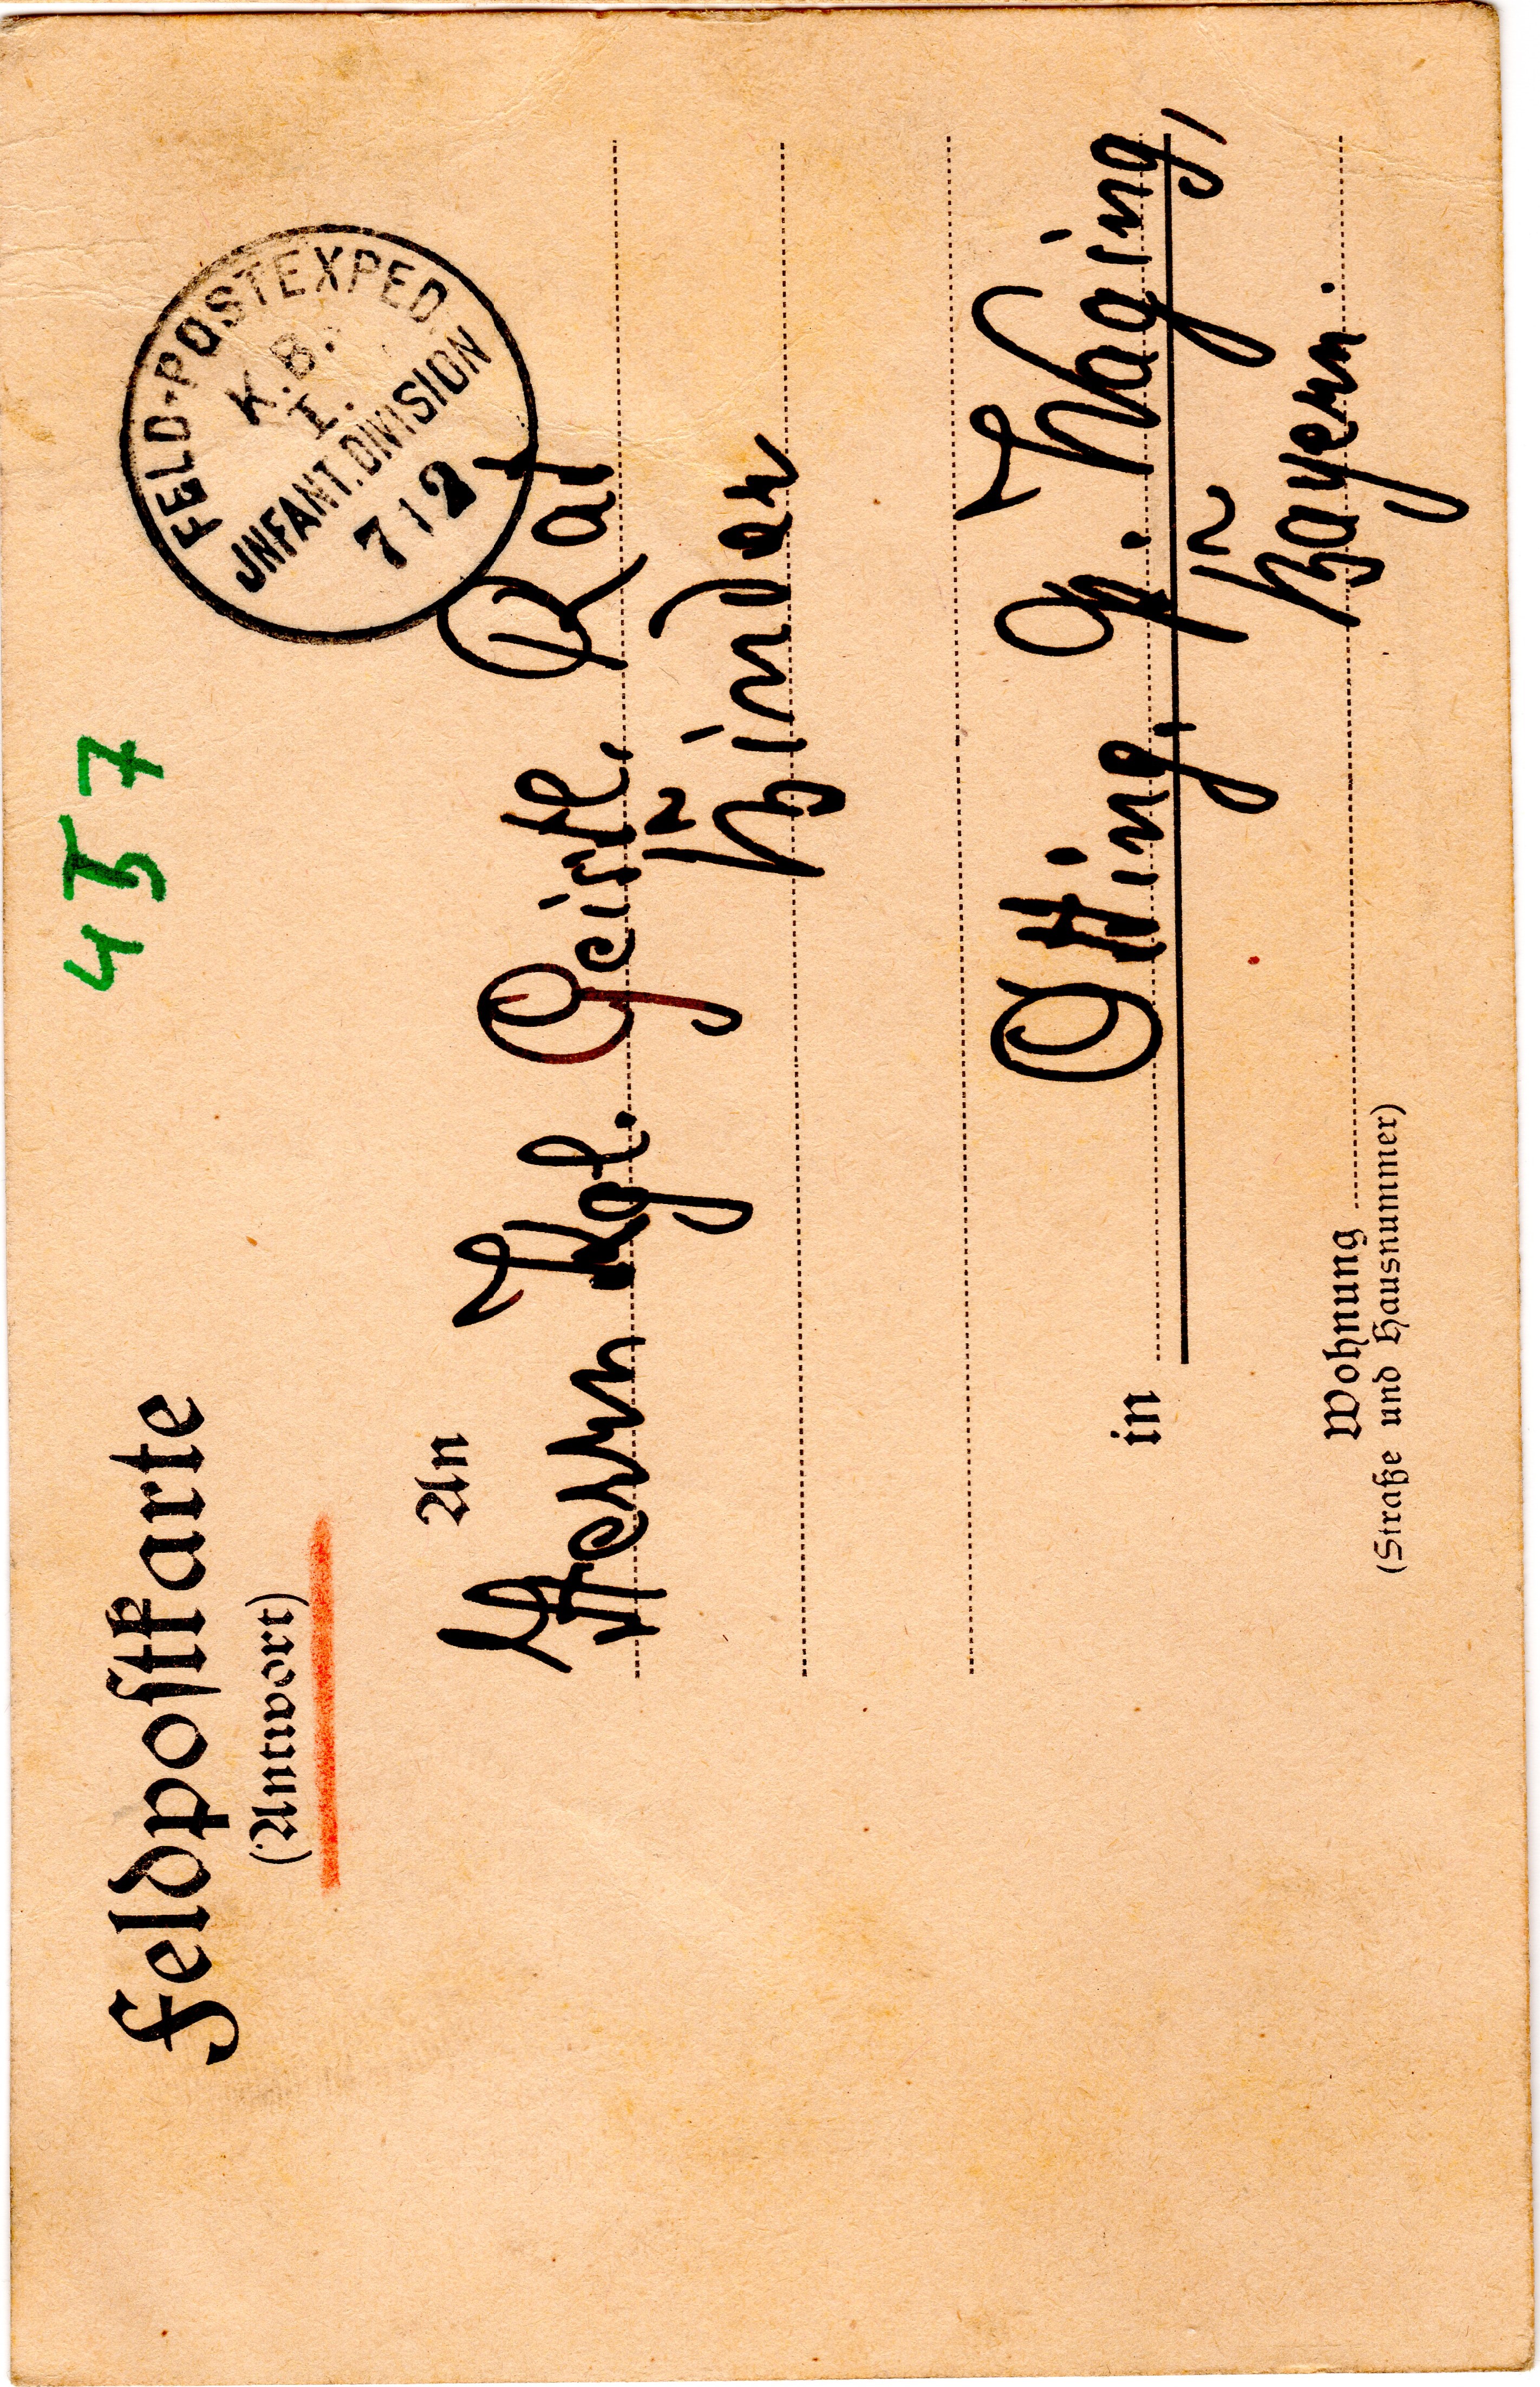 457
Feldpostkarte
(Antwort)
FELD-POSTEXPED.
K.B.
I.
JNFANT.DIVISION
7 12
An
Herrn Kgl. Geistl. Rat
Binder
in Otting, P. Waging,
Bayern.
Wohnung
(Straße und Hausnummer)